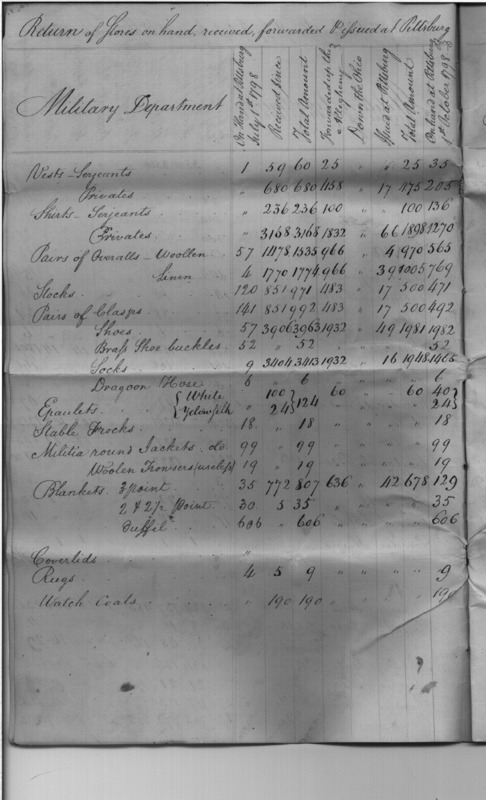 Return of Stores on hand, received, forwarded & issued at Pittsburg
Military Department
On Hand at Pittsburg July 1st 1798
Received since
Total Amount
Forwarded up the Allegheny
Down the Ohio
Issued at Pittsburg
Total Amount
On hand at Pittsburg 1st October 1798
Vests - Serjeants 1 59 60 25 " " 25 35
Privates " 680 680 458 " 17 475 205
Shirts - Serjeants " 236 236 100 100 136
Privates " 3168 3168 1832 " 66 1898 1270
Pairs of Overalls - Woollen 57 1478 1535 966 4 970 565
Linen 4 1770 1774 966 " 39 1005 769
Stocks 120 851 971 483 " 17 500 471
Pairs of Clasps 141 851 992 483 " 17 500 492
Shoes 57 3906 3963 1932 " 49 1981 1982
Brass Shoe buckles 52 " 52 52
Socks 9 3404 3413 1932 " 16 1948 1465
Dragoon Hose 6 " 6 6
Epaulets { White 100 } 124 60 60 40 }
{ Yelow silk 24 } 24 }
Stable Frocks 18 " 18 18
Militia round Jackets do 99 " 99 99
Woolen Trowsers 19 " 19 19
Blankets 3 point 35 772 807 636 " 42 678 129
2 & 2½ Point 30 5 35 " " 35
Duffel 606 " 606 606
Coverlids "
Rugs 4 5 9 9
Watch Coats " 190 190